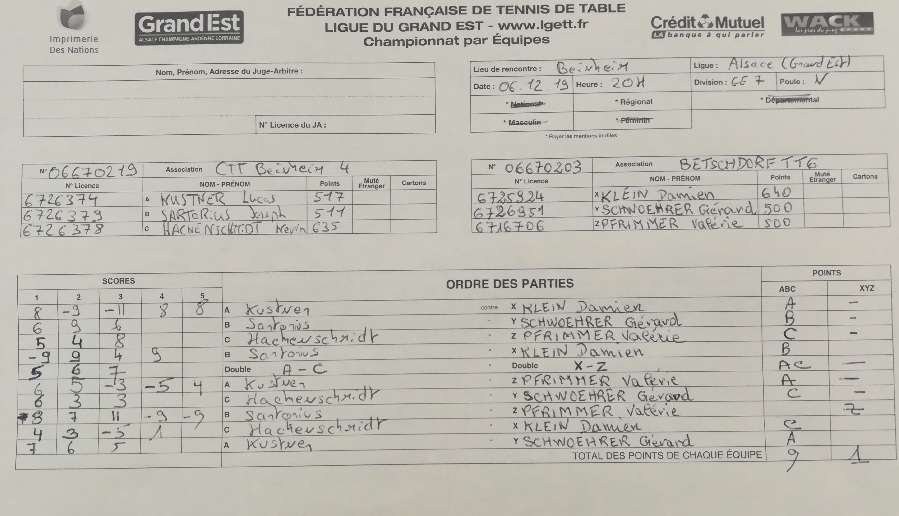 Imprimerie
Des Nations
GrandEst
ALSACE CHAMPAGNE-ARDENNE LORRAINE
FÉDÉRATION FRANÇAISE DE TENNIS DE TABLE
LIGUE DU GRAND EST - www.lgett.fr
Championnat par Équipes
Crédit Mutuel
LA banque à qui parler
WACK
Nom, Prénom, Adresse du Juge-Arbitre :
N° Licence du JA :
Lieu de rencontre : Beinheim Ligue : Alsace (Grand Est)
Date : 06.12.19 Heure : 20H Division : GE7 Poule : N
* National * Régional * Départemental
* Masculin * Féminin
* Rayer les mentions inutiles
N° 06670219 Association CTT Beinheim 4
N° Licence NOM - PRÉNOM Points Muté Etranger Cartons
6726374 A KUSTNER Lucas 517
6726379 B SARTORIUS Joseph 511
6726378 C HACHENSCHMIDT Kevin 635
N° 06670203 Association BETSCHDORF TT6
N° Licence NOM - PRÉNOM Points Muté Etranger Cartons
6725924 X KLEIN Damien 640
6726951 Y SCHWOEHRER Gérard 500
6716706 Z PFRIMMER Valérie 500
SCORES ORDRE DES PARTIES POINTS
1 2 3 4 5 ABC XYZ
8 -9 -11 8 8 A Kustner contre X KLEIN Damien A -
6 9 6 B Sartorius - Y SCHWOEHRER Gérard B -
5 4 8 C Hachenschmidt - Z PFRIMMER Valérie C -
-9 9 4 9 B Sartorius - X KLEIN Damien B
5 6 7 Double A-C - Double X-Z AC -
6 5 -3 -5 4 A Kustner - Z PFRIMMER Valérie A -
6 3 3 C Hachenschmidt - Y SCHWOEHRER Gérard C -
8 7 11 -9 -9 B Sartorius - Z PFRIMMER Valérie Z
4 3 -5 1 C Hachenschmidt - X KLEIN Damien C
7 6 5 A Kustner - Y SCHWOEHRER Gérard A
TOTAL DES POINTS DE CHAQUE ÉQUIPE 9 1